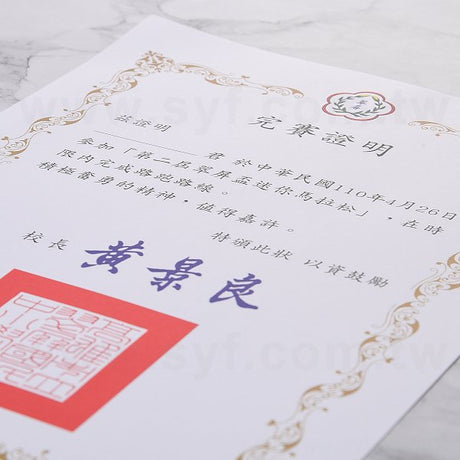 完賽證明
茲證明
君 於中華民國110年4月26日
參加「第二屆翠屏盃迷你馬拉松」，在時
限內完成路跑路線。
積極奮勇的精神，值得嘉許。
特頒此狀 以資鼓勵
校長 黃景良
www.syf.com.tw
www.syf.com.tw